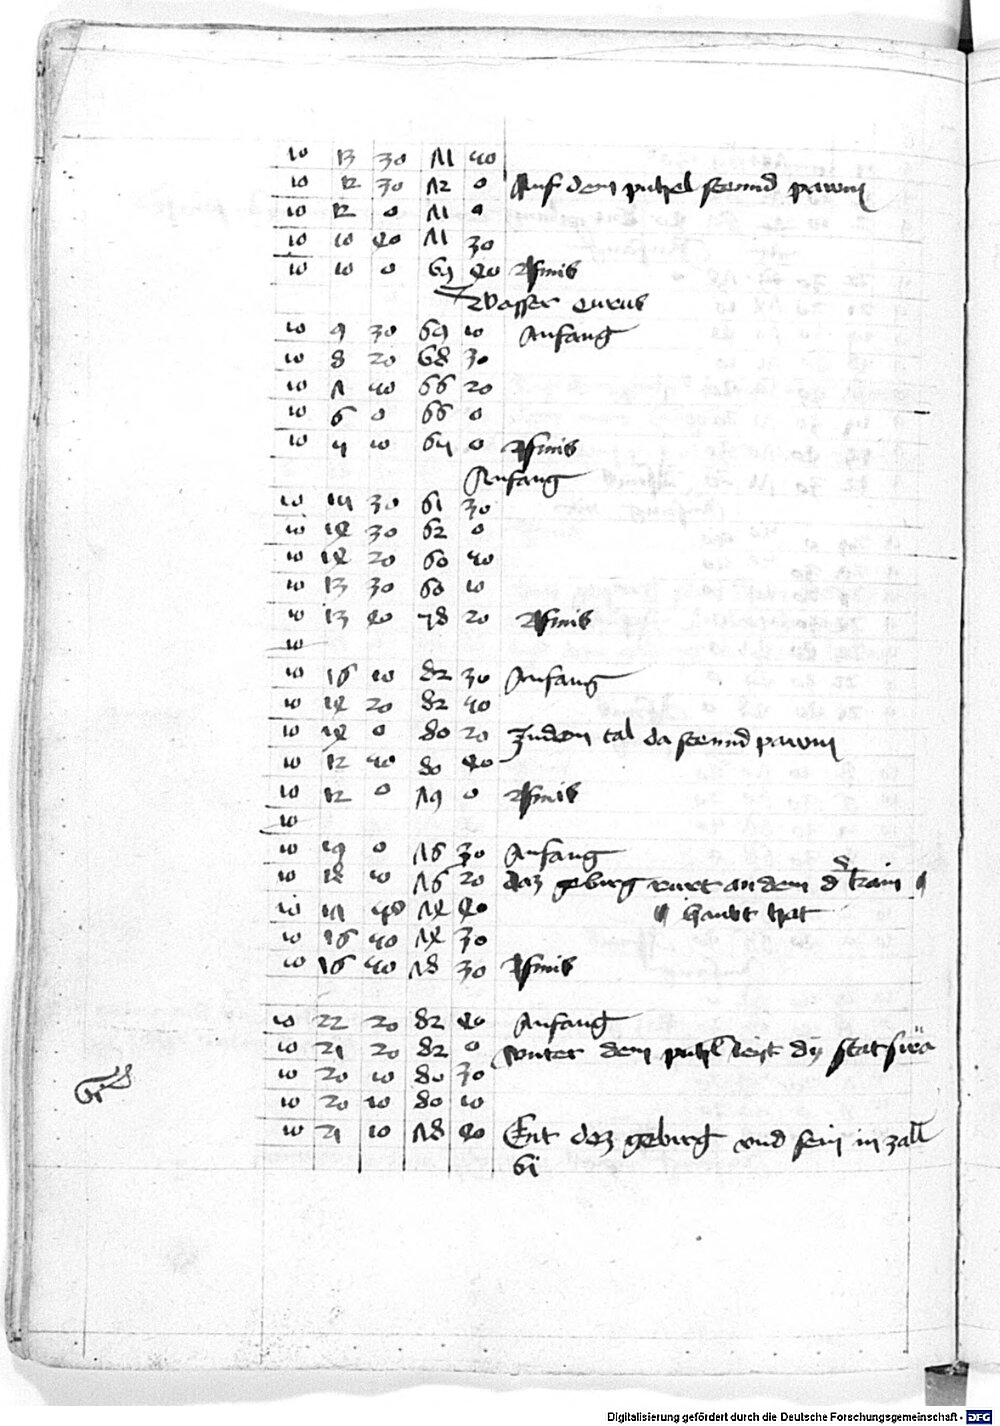 10 13 30 71 40
10 12 30 72 0 Auf dem puhel stennd pawm
10 12 0 71 0
10 10 50 71 30
10 10 0 69 50 Finis
Wasser curus
10 9 30 69 10 Anfang
10 8 20 68 30
10 7 40 66 20
10 6 0 66 0
10 4 10 64 0 Finis
Anfang
10 14 30 61 30
10 15 30 62 0
10 15 20 60 40
10 13 30 60 10
10 13 50 58 20 Finis
10
10 16 10 82 30 Anfang
10 15 20 82 40
10 15 0 80 20 Zudem tal da stennd pawm
10 12 40 80 50
10 12 0 79 0 Finis
10
10 19 0 76 30 Anfang
10 18 10 76 20 daz gebirg rurt an dem d
10 17 40 75 50 haubt hat
10 16 40 75 30
10 16 40 78 30 Finis
10 22 20 82 50 Anfang
10 21 20 82 0 vnter dem puhel leyt dy stat
10 20 10 80 30
10 20 10 80 10
10 21 10 78 50 Ent dez gebirg vnd sein in zall
61